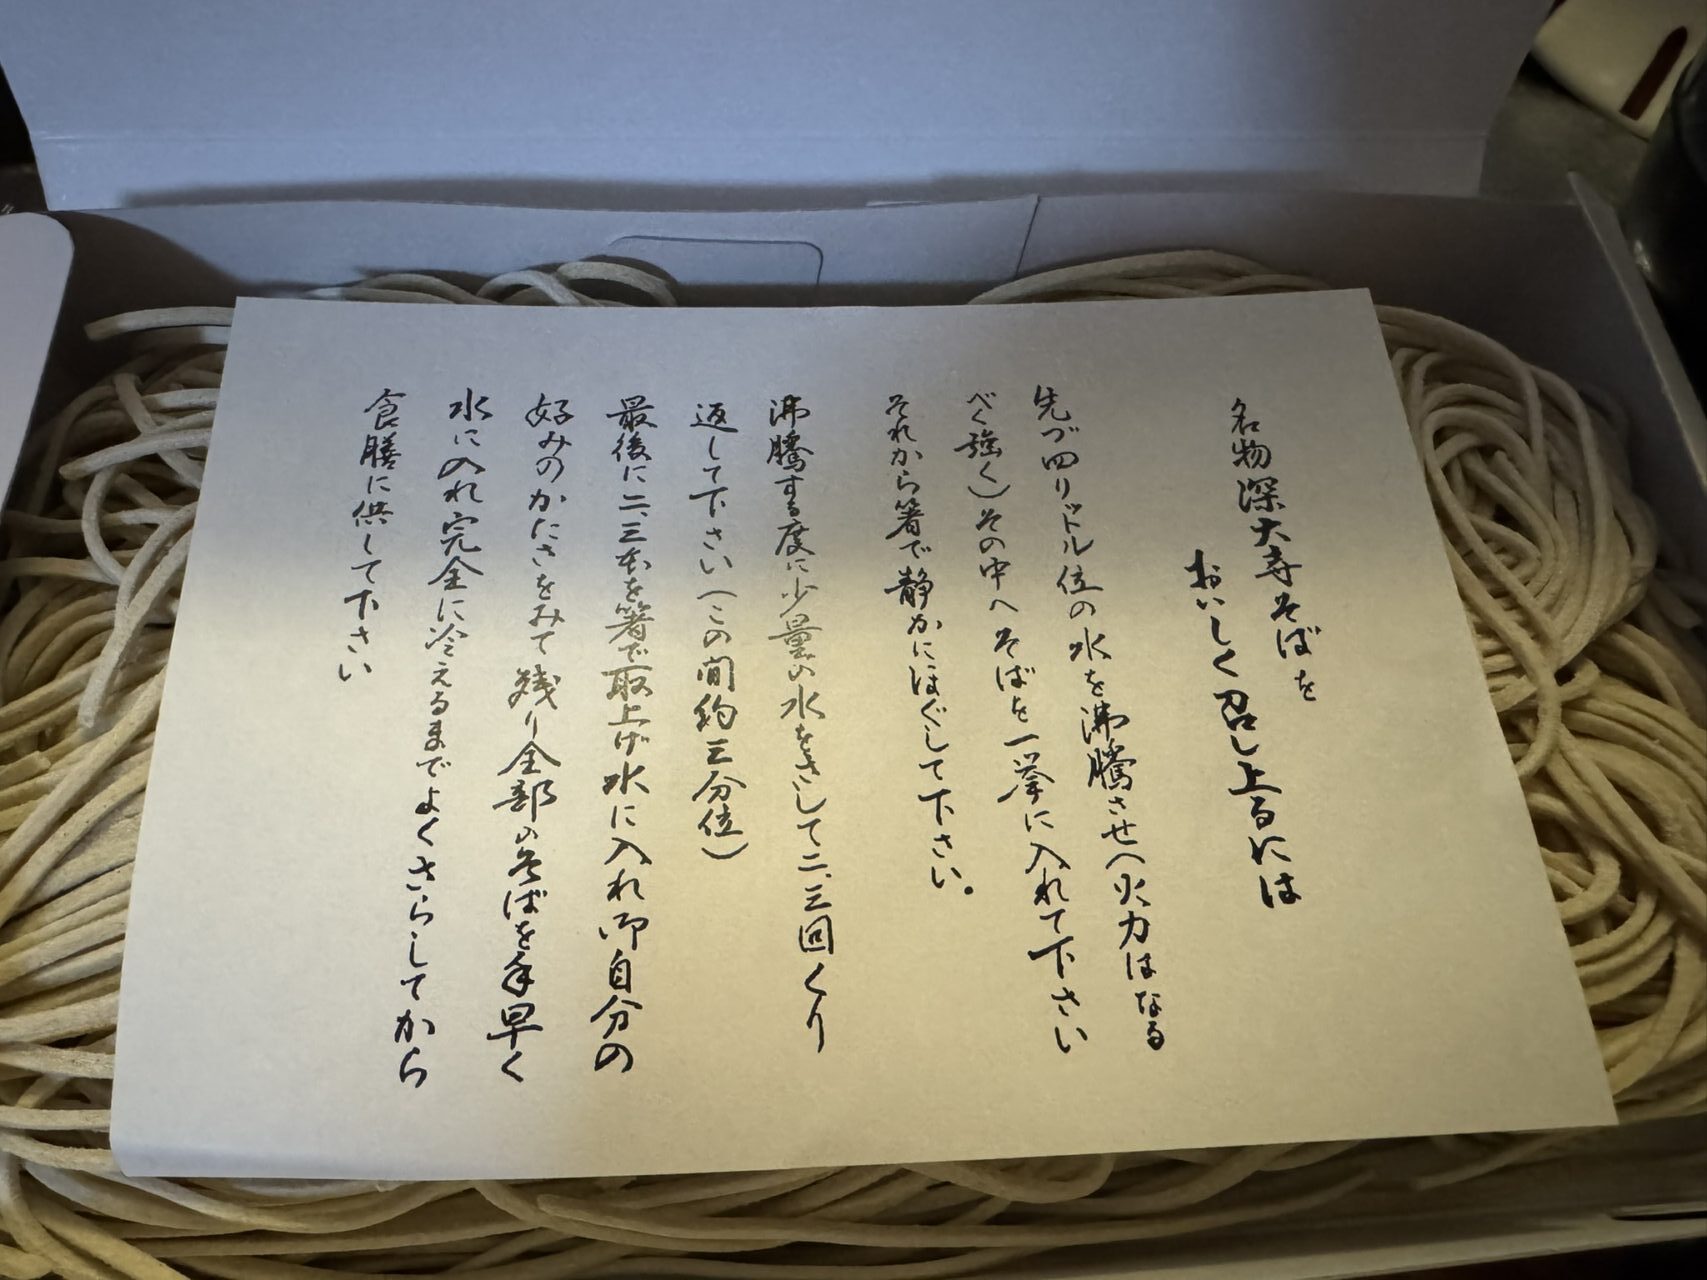 名物深大寺そばを
おいしく召し上るには
先づ四リットル位の水を沸騰させ（火力はなる
べく強く）その中へそばを一挙に入れて下さい
それから箸で静かにほぐして下さい。
沸騰する度に少量の水をさして二、三回くり
返して下さい（この間約三分位）
最後に二、三本を箸で取上げ水に入れ御自分の
好みのかたさをみて残り全部のそばを手早く
水に入れ完全に冷えるまでよくさらしてから
食膳に供して下さい